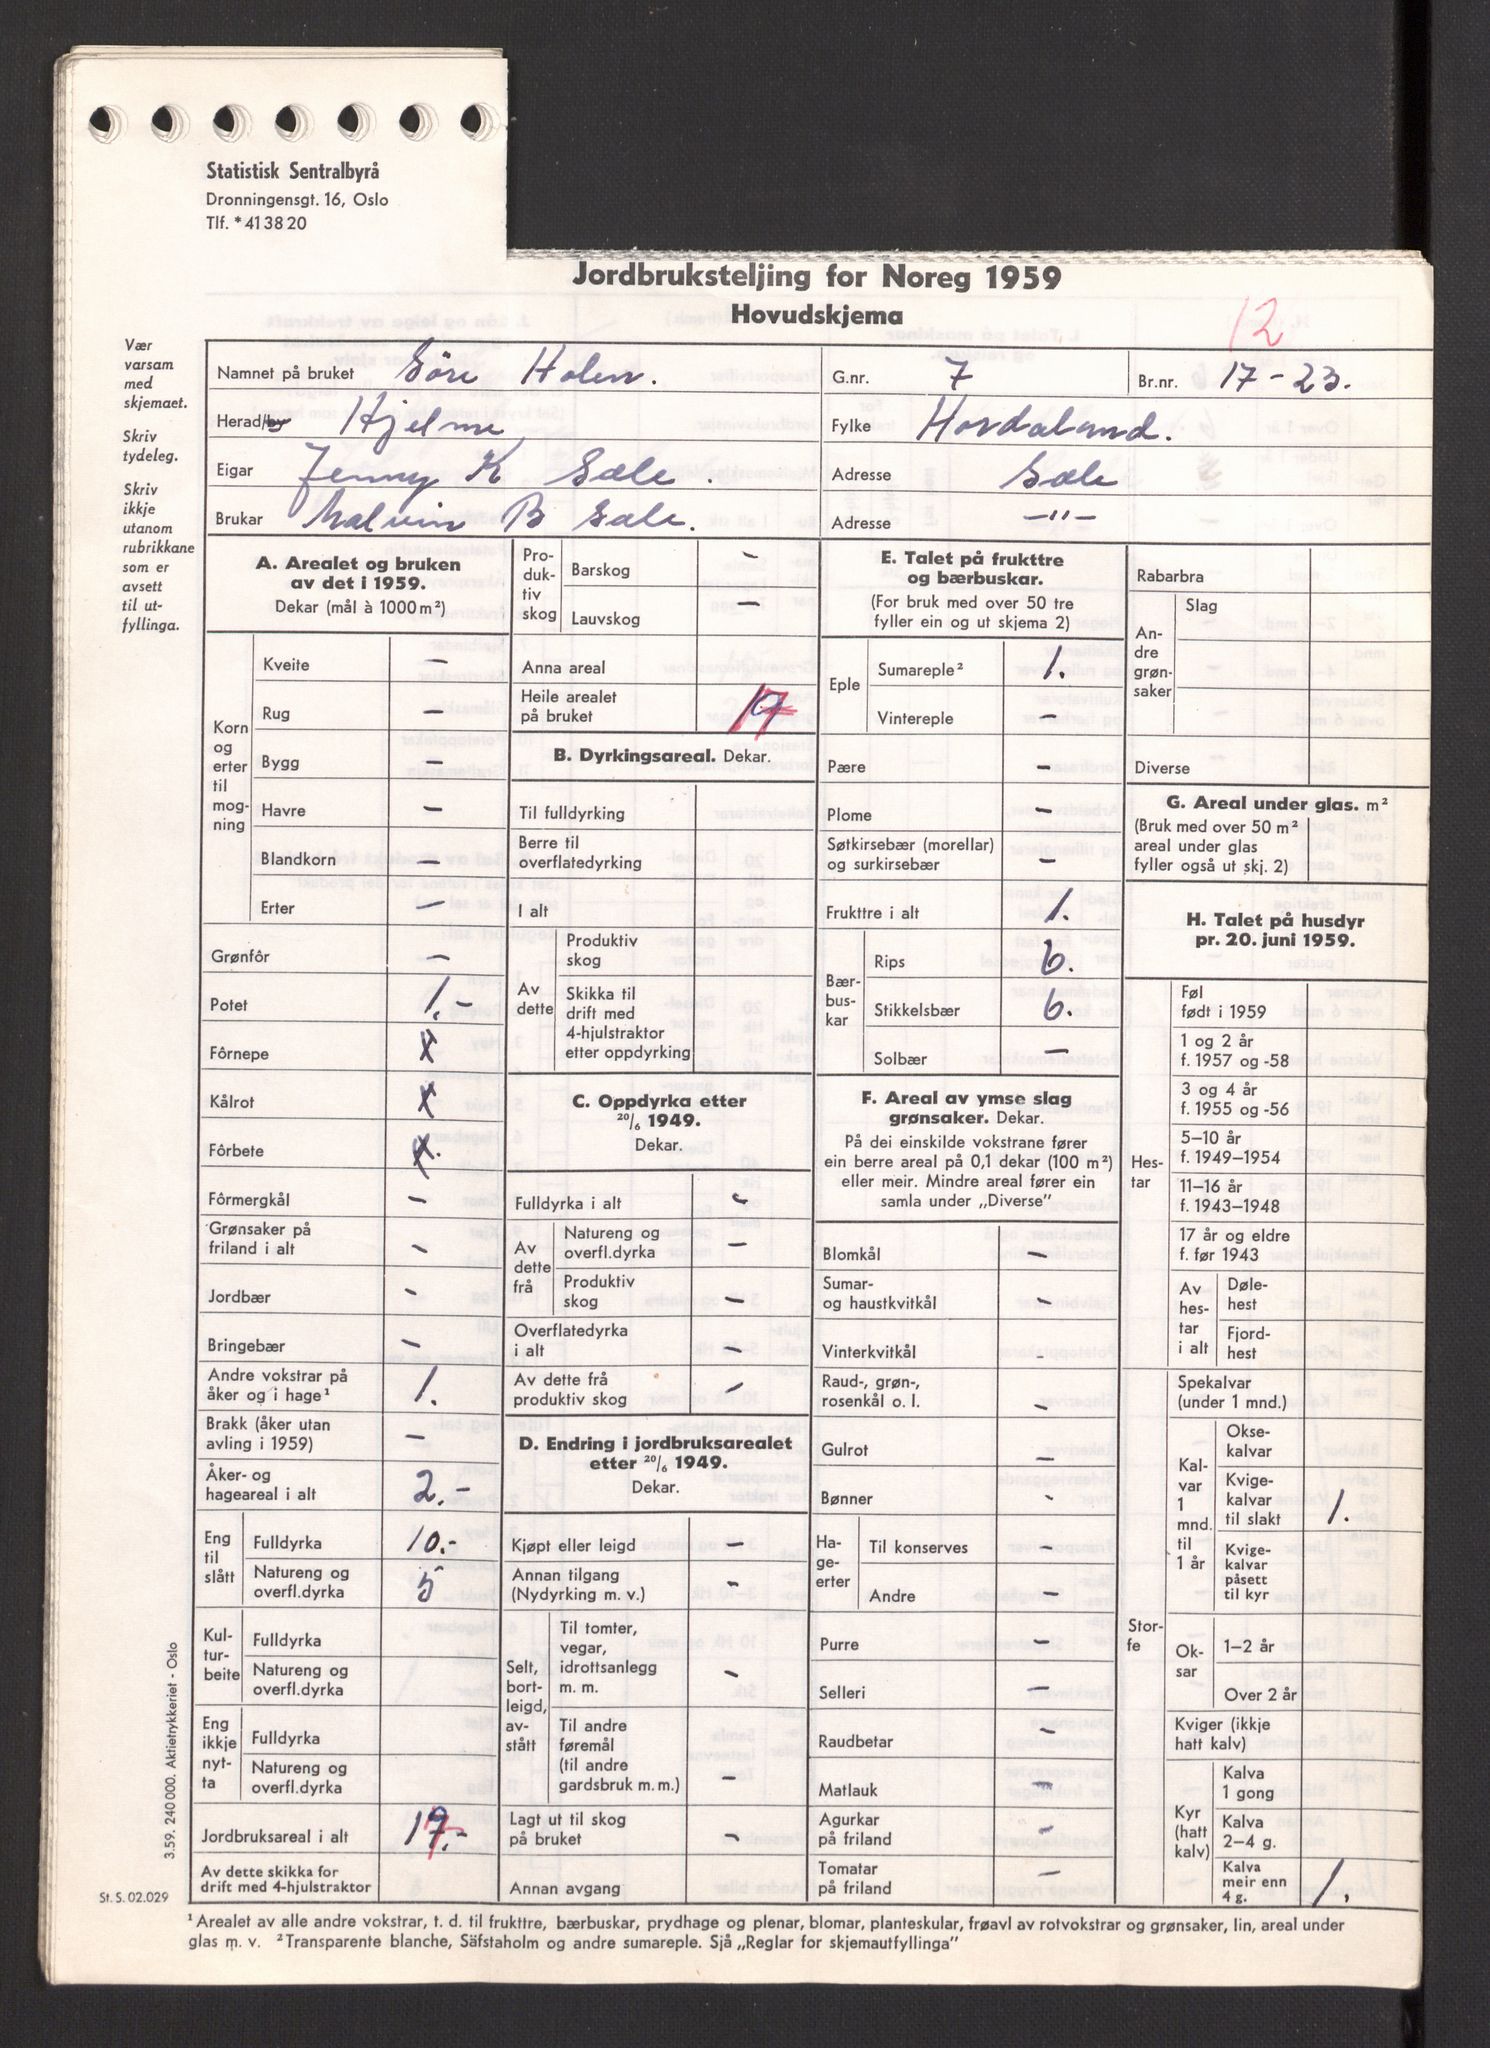 Statistisk Sentralbyrå
Dronningensgt. 16, Oslo
Tlf. *41 38 20
Jordbruksteljing for Noreg 1959
Hovudskjema
12
Vær
varsam
med
skjemaet.
Skriv
tydeleg.
Skriv
ikkje
utanom
rubrikkane
som er
avsett
til ut-
fyllinga.
Namnet på bruket Söre Holen.
G.nr. 7
Br.nr. 17-23.
Herad/by Hjelme
Fylke Hordaland.
Eigar Jenny K Sæle.
Adresse Sæle
Brukar Malvin B Sæle.
Adresse -"-
A. Arealet og bruken
av det i 1959.
Dekar (mål à 1000 m²)
Korn
og
erter
til
mog-
ning
Kveite –
Rug –
Bygg –
Havre –
Blandkorn –
Erter –
Grønfôr –
Potet 1.-
Fôrnepe X
Kålrot X
Fôrbete X.
Fôrmergkål –
Grønsaker på
friland i alt –
Jordbær –
Bringebær –
Andre vokstrar på
åker og i hage¹ 1.
Brakk (åker utan
avling i 1959) –
Åker- og
hageareal i alt 2.-
Eng
til
slått
Fulldyrka 10.-
Natureng og
overfl.dyrka 5
Kul-
tur-
beite
Fulldyrka
Natureng og
overfl.dyrka
Eng
ikkje
nyt-
ta
Fulldyrka
Natureng og
overfl.dyrka
Jordbruksareal i alt 17.-
Av dette skikka for
drift med 4-hjulstraktor
Pro-
duk-
tiv
skog
Barskog –
Lauvskog –
Anna areal
Heile arealet
på bruket 17
B. Dyrkingsareal. Dekar.
Til fulldyrking
Berre til
overflatedyrking
I alt
Av
dette
Produktiv
skog
Skikka til
drift med
4-hjulstraktor
etter oppdyrking
C. Oppdyrka etter
20/6 1949.
Dekar.
Fulldyrka i alt –
Av
dette
frå
Natureng og
overfl.dyrka –
Produktiv
skog –
Overflatedyrka
i alt –
Av dette frå
produktiv skog –
D. Endring i jordbruksarealet
etter 20/6 1949.
Dekar.
Kjøpt eller leigd –
Annan tilgang
(Nydyrking m. v.) –
Selt,
bort-
leigd,
av-
stått
Til tomter,
vegar,
idrottsanlegg
m. m. –
Til andre
føremål
(til andre
gardsbruk m. m.) –
Lagt ut til skog
på bruket –
Annan avgang
E. Talet på frukttre
og bærbuskar.
(For bruk med over 50 tre
fyller ein og ut skjema 2)
Eple
Sumareple² 1.
Vintereple –
Pære –
Plome –
Søtkirsebær (morellar)
og surkirsebær –
Frukttre i alt 1.
Bær-
bus-
kar
Rips 6.
Stikkelsbær 6.
Solbær –
F. Areal av ymse slag
grønsaker. Dekar.
På dei einskilde vokstrane fører
ein berre areal på 0,1 dekar (100 m²)
eller meir. Mindre areal fører ein
samla under „Diverse”
Blomkål –
Sumar-
og haustkvitkål –
Vinterkvitkål –
Raud-, grøn-,
rosenkål o. l. –
Gulrot –
Bønner –
Ha-
ge-
erter
Til konserves –
Andre –
Purre –
Selleri –
Raudbetar –
Matlauk –
Agurkar
på friland –
Tomatar
på friland –
Rabarbra
An-
dre
grøn-
saker
Slag
Diverse
G. Areal under glas. m²
(Bruk med over 50 m²
areal under glas
fyller også ut skj. 2)
H. Talet på husdyr
pr. 20. juni 1959.
Hes-
tar
Føl
født i 1959
1 og 2 år
f. 1957 og -58
3 og 4 år
f. 1955 og -56
5–10 år
f. 1949–1954
11–16 år
f. 1943–1948
17 år og eldre
f. før 1943
Av
hes-
tar
i alt
Døle-
hest
Fjord-
hest
Stor-
fe
Spekalvar
(under 1 mnd.)
Kal-
var
1
mnd.
til
1 år
Okse-
kalvar
Kvige-
kalvar
til slakt 1.
Kvige-
kalvar
påsett
til kyr
Ok-
sar
1–2 år
Over 2 år
Kviger (ikkje
hatt kalv)
Kyr
(hatt
kalv)
Kalva
1 gong
Kalva
2–4 g.
Kalva
meir enn
4 g. 1.
3.59. 240 000. Aktietrykkeriet - Oslo
St. S. 02.029
¹ Arealet av alle andre vokstrar, t. d. til frukttre, bærbuskar, prydhage og plenar, blomar, planteskular, frøavl av rotvokstrar og grønsaker, lin, areal under
glas m. v. ² Transparente blanche, Säfstaholm og andre sumareple. Sjå „Reglar for skjemautfyllinga”